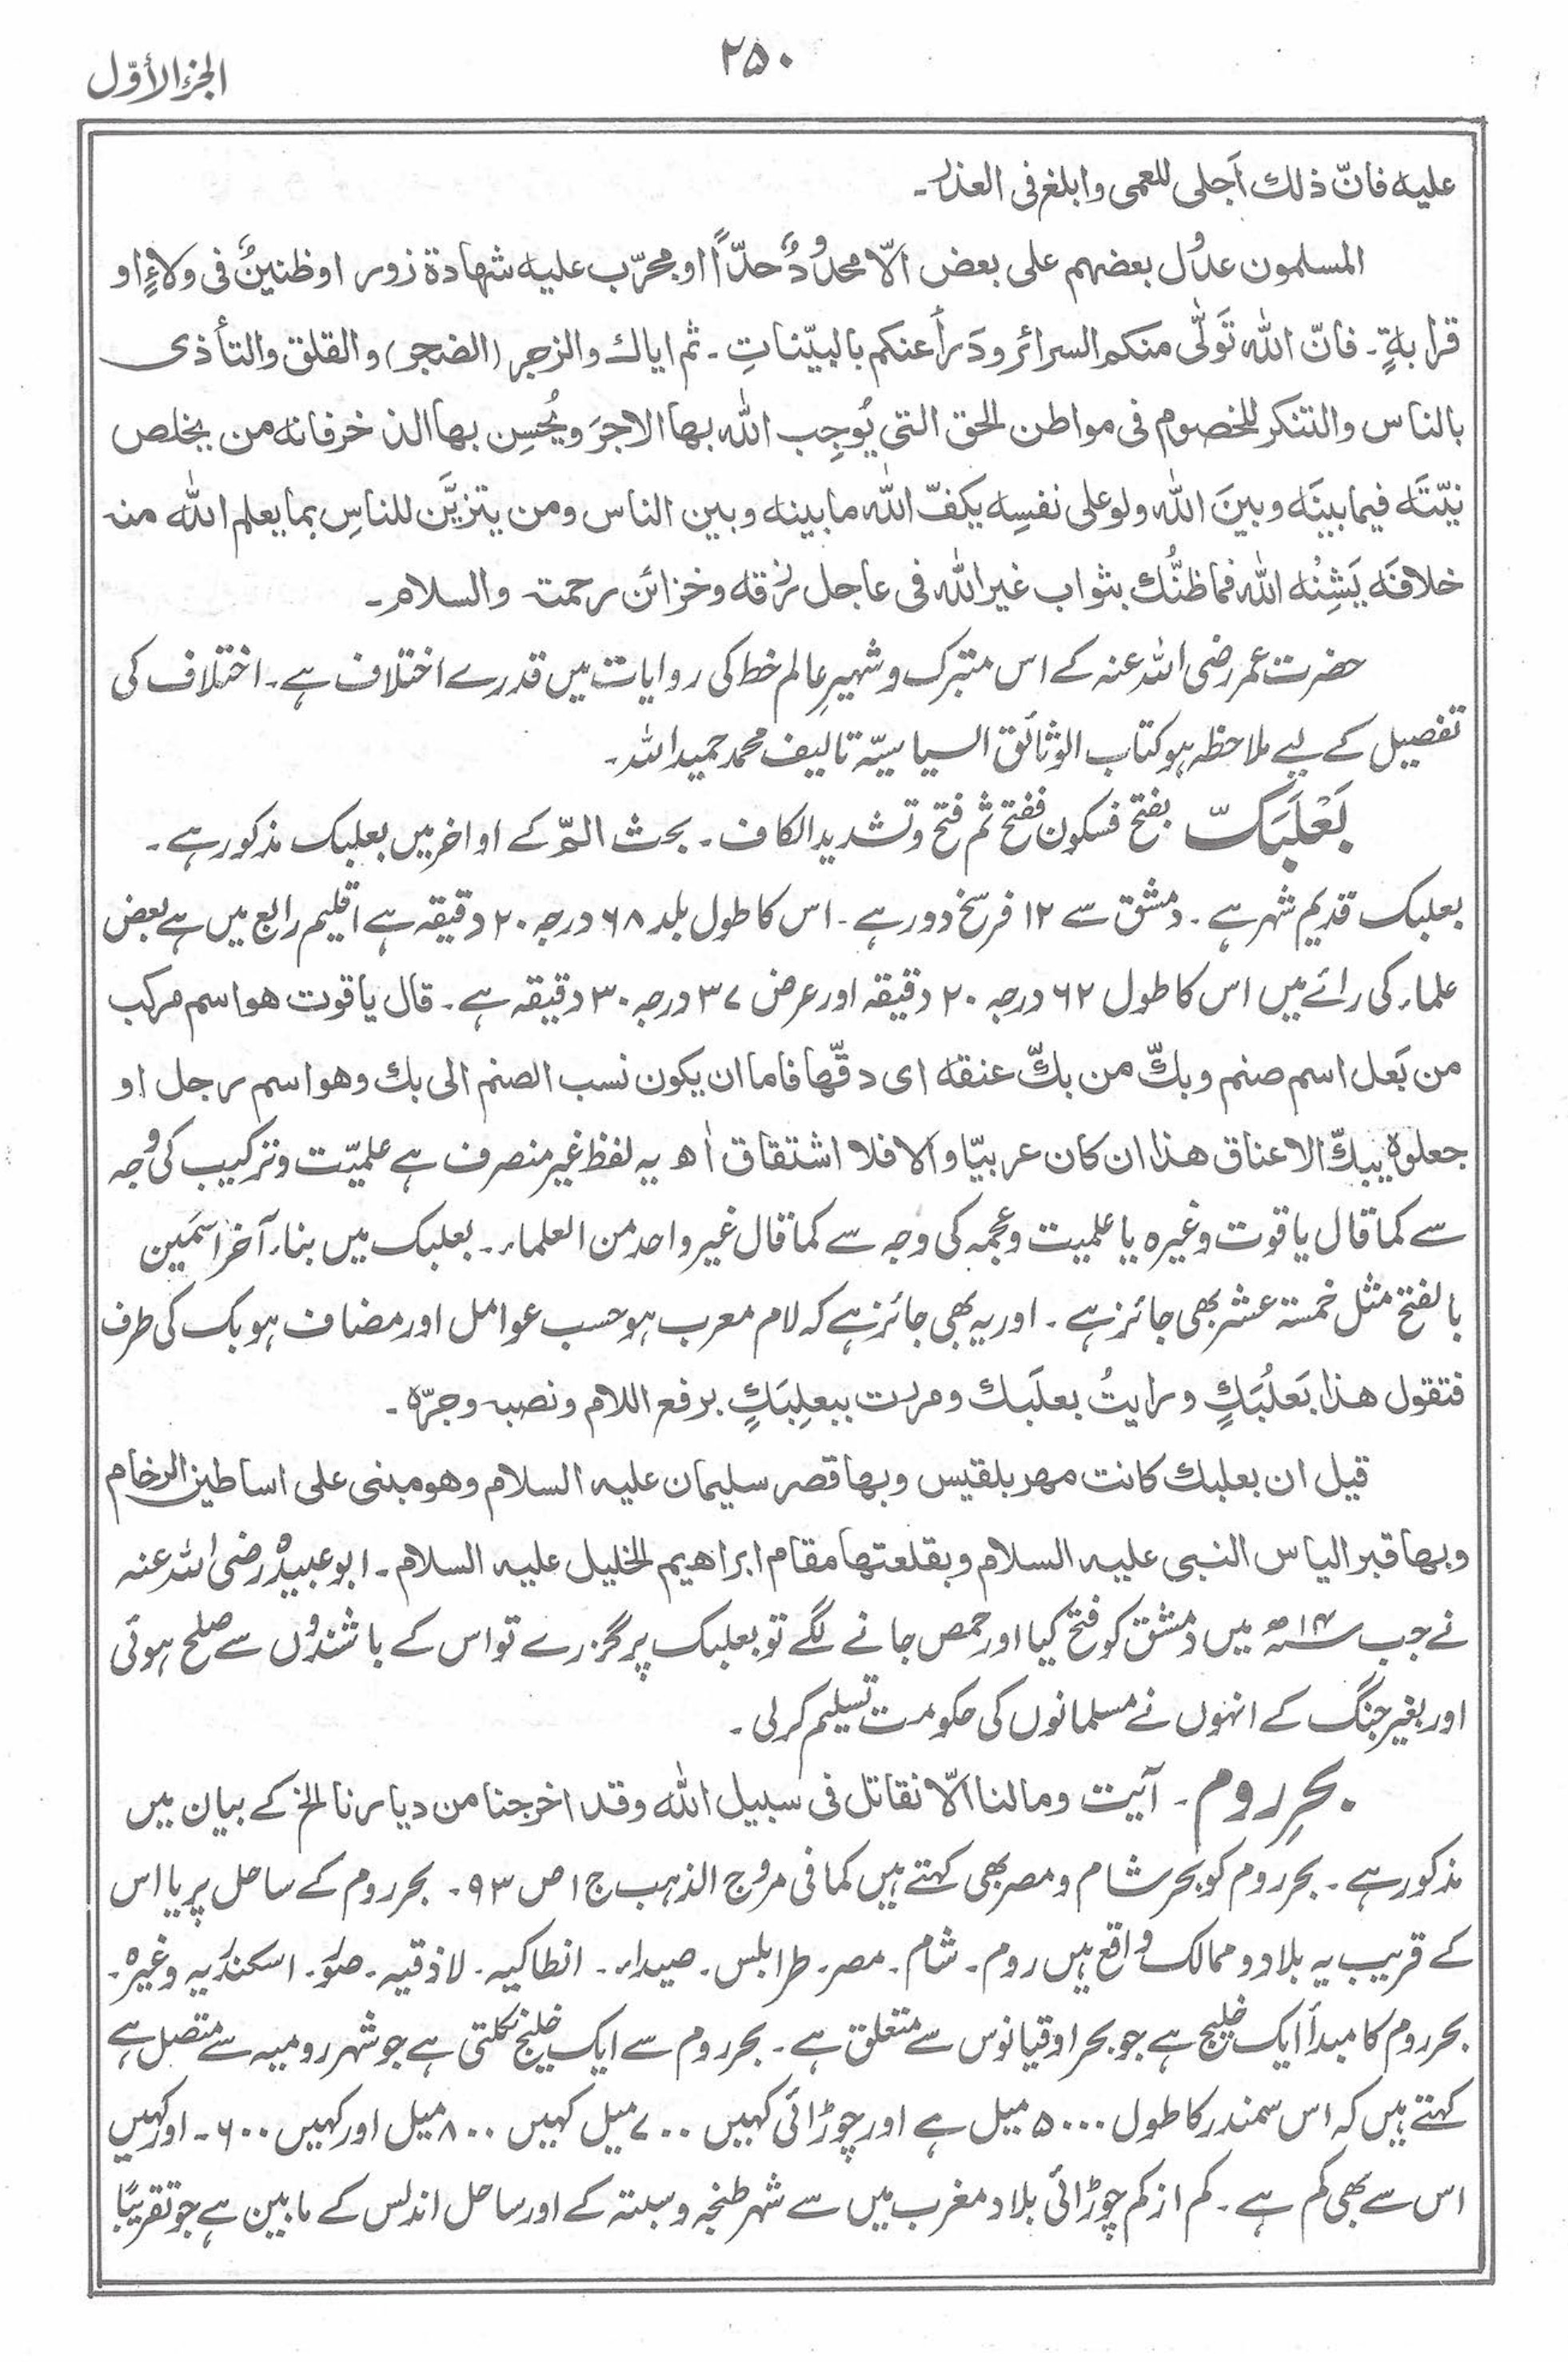 ۲۵۰
الجزء الأوّل
علیه فانّ ذلك اَجلی للعمی وابلغ فی العذر۔
المسلمون عدُول بعضهم علی بعض الّا محدُودٌ حدّاً او مجرّب علیه شهادة زور او ظنینٌ فی ولاءٍ او
قرابةٍ۔ فانّ الله تَوَلّٰی منکم السرائر ودَرأ عنکم بالبیّناتِ۔ ثم ایاك والزجر (الضجر) والقلق والتأذی
بالناس والتنکر للخصوم فی مواطن الحق التی یُوجِب الله بها الاجرَ ویُحسِن بها الذخر فانه من یخلص
نیّتَه فیما بینَه وبینَ الله ولو علی نفسِه یکفّ الله ما بینه وبین الناس ومن یتزیَّن للناسِ بما یعلم الله منه
خلافَه یَشِنْه الله فما ظنُّك بثواب غیر الله فی عاجل رزقه وخزائن رحمته والسلام۔
حضرت عمر رضی اللہ عنہ کے اس متبرک و شہیرِ عالم خط کی روایات میں قدرے اختلاف ہے۔ اختلاف کی
تفصیل کے لیے ملاحظہ ہو کتاب الوثائق السیاسیّہ تالیف محمد حمید اللہ۔
بَعْلَبَكّ بفتح فسکون ففتح ثم فتح وتشدید الکاف۔ بحث الٓمّ کے اواخر میں بعلبک مذکور ہے۔
بعلبک قدیم شہر ہے۔ دمشق سے ۱۲ فرسخ دور ہے۔ اس کا طول بلد ۶۸ درجہ ۲۰ دقیقہ ہے اقلیم رابع میں ہے بعض
علماء کی رائے میں اس کا طول ۶۲ درجہ ۲۰ دقیقہ اور عرض ۳۷ درجہ ۳۰ دقیقہ ہے۔ قال یاقوت هو اسم مرکب
من بَعل اسم صنم وبكّ من بكّ عنقه ای دقّها فاما ان یکون نسب الصنم الی بك وهو اسم رجل او
جعلوه یبكّ الاعناق هذا ان کان عربیّا والا فلا اشتقاق اھ یہ لفظ غیر منصرف ہے علمیّت وترکیب کی وجہ
سے کما قال یاقوت وغیرہ یا علمیت و عجمہ کی وجہ سے کما قال غیر واحد من العلماء۔ بعلبک میں بناء آخر اسمَین
بالفتح مثل خمسۃ عشر بھی جائز ہے۔ اور یہ بھی جائز ہے کہ لام معرب ہو حسب عوامل اور مضاف ہو بک کی طرف
فتقول هذا بَعلُبَكٍ ورایتُ بعلَبك ومررت ببعلِبَكٍ برفع اللام ونصبه وجرّه۔
قیل ان بعلبك کانت مهر بلقیس وبها قصر سلیمان علیه السلام وهو مبنی علی اساطین الرخام
وبها قبر الیاس النبی علیه السلام وبقلعتها مقام ابراهیم الخلیل علیه السلام۔ ابو عبیدہ رضی اللہ عنہ
نے جب ۱۴ھ میں دمشق کو فتح کیا اور حمص جانے لگے تو بعلبک پر گزرے تو اس کے باشندوں سے صلح ہوئی
اور بغیر جنگ کے انہوں نے مسلمانوں کی حکومت تسلیم کر لی۔
بحرِ روم۔ آیت ومالنا الّا نقاتل فی سبیل الله وقد اخرجنا من دیارنا الخ کے بیان میں
مذکور ہے۔ بحر روم کو بحر شام و مصر بھی کہتے ہیں کما فی مروج الذہب ج ۱ ص ۹۳۔ بحر روم کے ساحل پر یا اس
کے قریب یہ بلاد و ممالک واقع ہیں روم۔ شام۔ مصر۔ طرابلس۔ صیداء۔ انطاکیہ۔ لاذقیہ۔ صُوَر۔ اسکندریہ وغیرہ۔
بحر روم کا مبدأ ایک خلیج ہے جو بحر اوقیانوس سے متعلق ہے۔ بحر روم سے ایک خلیج نکلتی ہے جو شہر رومیہ سے متصل ہے
کہتے ہیں کہ اس سمندر کا طول ۵۰۰۰ میل ہے اور چوڑائی کہیں ۷۰۰ میل کہیں ۸۰۰ میل اور کہیں ۶۰۰۔ اور کہیں
اس سے بھی کم ہے۔ کم از کم چوڑائی بلاد مغرب میں سے شہر طنجہ و سبتہ کے اور ساحل اندلس کے مابین ہے جو تقریبًا